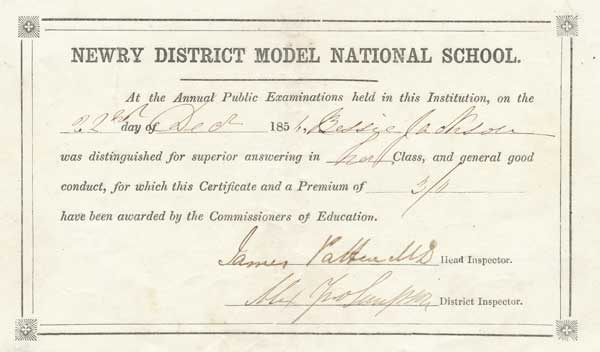 NEWRY DISTRICT MODEL NATIONAL SCHOOL.
At the Annual Public Examinations held in this Institution, on the
22nd day of Decr 185 Bessie Jackson
was distinguished for superior answering in her Class, and general good
conduct, for which this Certificate and a Premium of 3/0
have been awarded by the Commissioners of Education.
James Patten MD Head Inspector.
District Inspector.